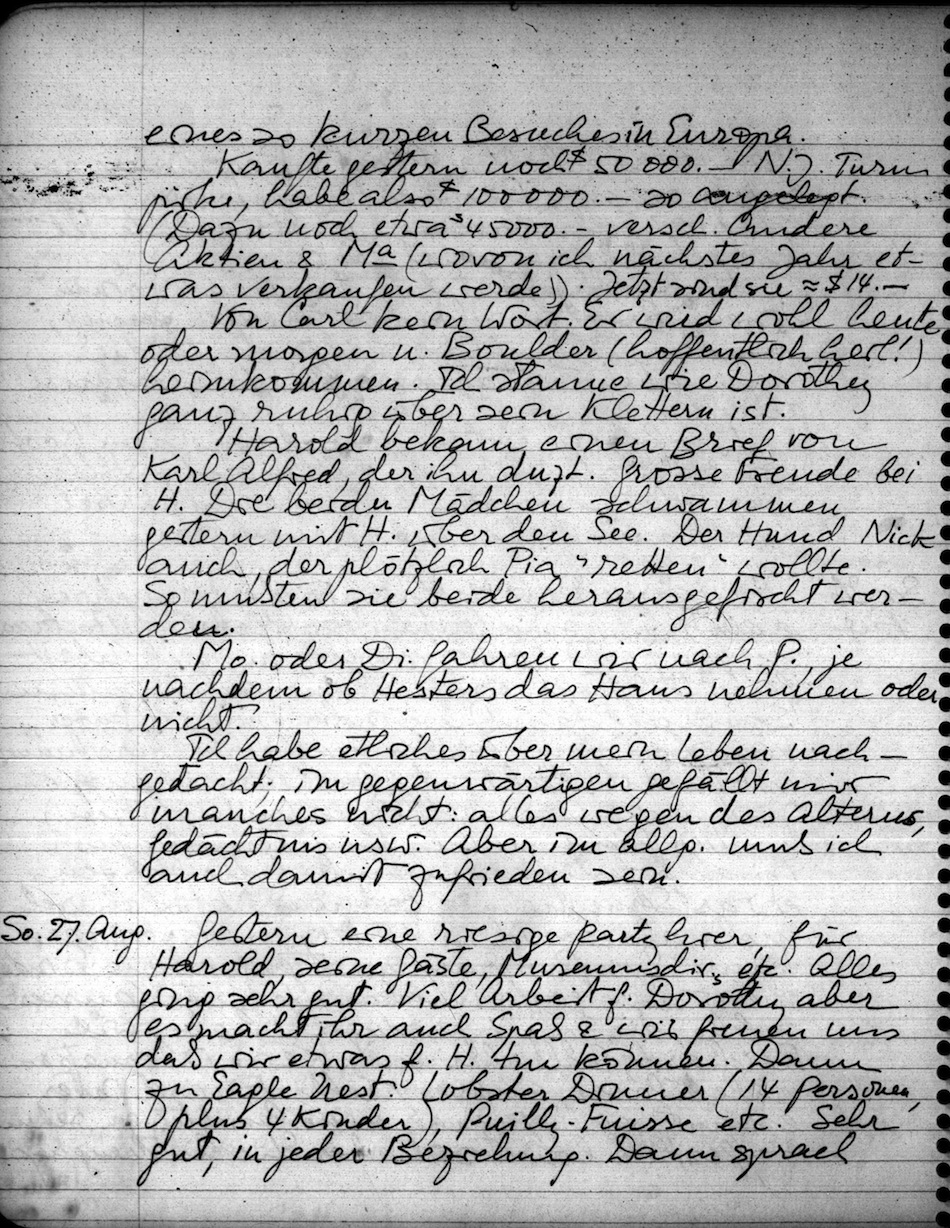 eines so kurzen Besuches in Europa.
Kaufte gestern noch $ 50 000.– N.J. Turn
pike, habe also $ 100 000.– so angelegt.
(Dazu noch etwa $ 45000.– versch. andere
Aktien & Ma (wovon ich nächstes Jahr et-
was verkaufen werde)). Jetzt sind sie ≈ $ 14.–
Von Carl kein Wort. Er wird wohl heute
oder morgen n. Boulder (hoffentlich heil!)
heimkommen. Ich staune wie Dorothy
ganz ruhig über sein Klettern ist.
Harold bekam einen Brief von
Karl Alfred, der ihn duzt. Grosse Freude bei
H. Die beiden Mädchen schwammen
gestern mit H. über den See. Der Hund Nick
auch, der plötzlich Pia "retten" wollte.
So mußten sie beide herausgefischt wer-
den.
Mo. oder Di. fahren wir nach P., je
nachdem ob Hesters das Haus nehmen oder
nicht.
Ich habe etliches über mein Leben nach-
gedacht; im gegenwärtigen gefällt mir
manches nicht: alles wegen des Alterns,
Gedächtnis usw. Aber im allg. muß ich
auch damit zufrieden sein.
So. 27. Aug. Gestern eine riesige party hier, für
Harold, seine Gäste, Museumsdir., etc. Alles
ging sehr gut. Viel Arbeit f. Dorothy aber
es macht ihr auch Spaß & wir freuen uns
daß wir etwas f. H. tun können. Dann
zu Eagle Nest. Lobster Dinner (14 Personen,
plus 4 Kinder), Puilly-Fuisse etc. Sehr
gut, in jeder Beziehung. Dann sprach